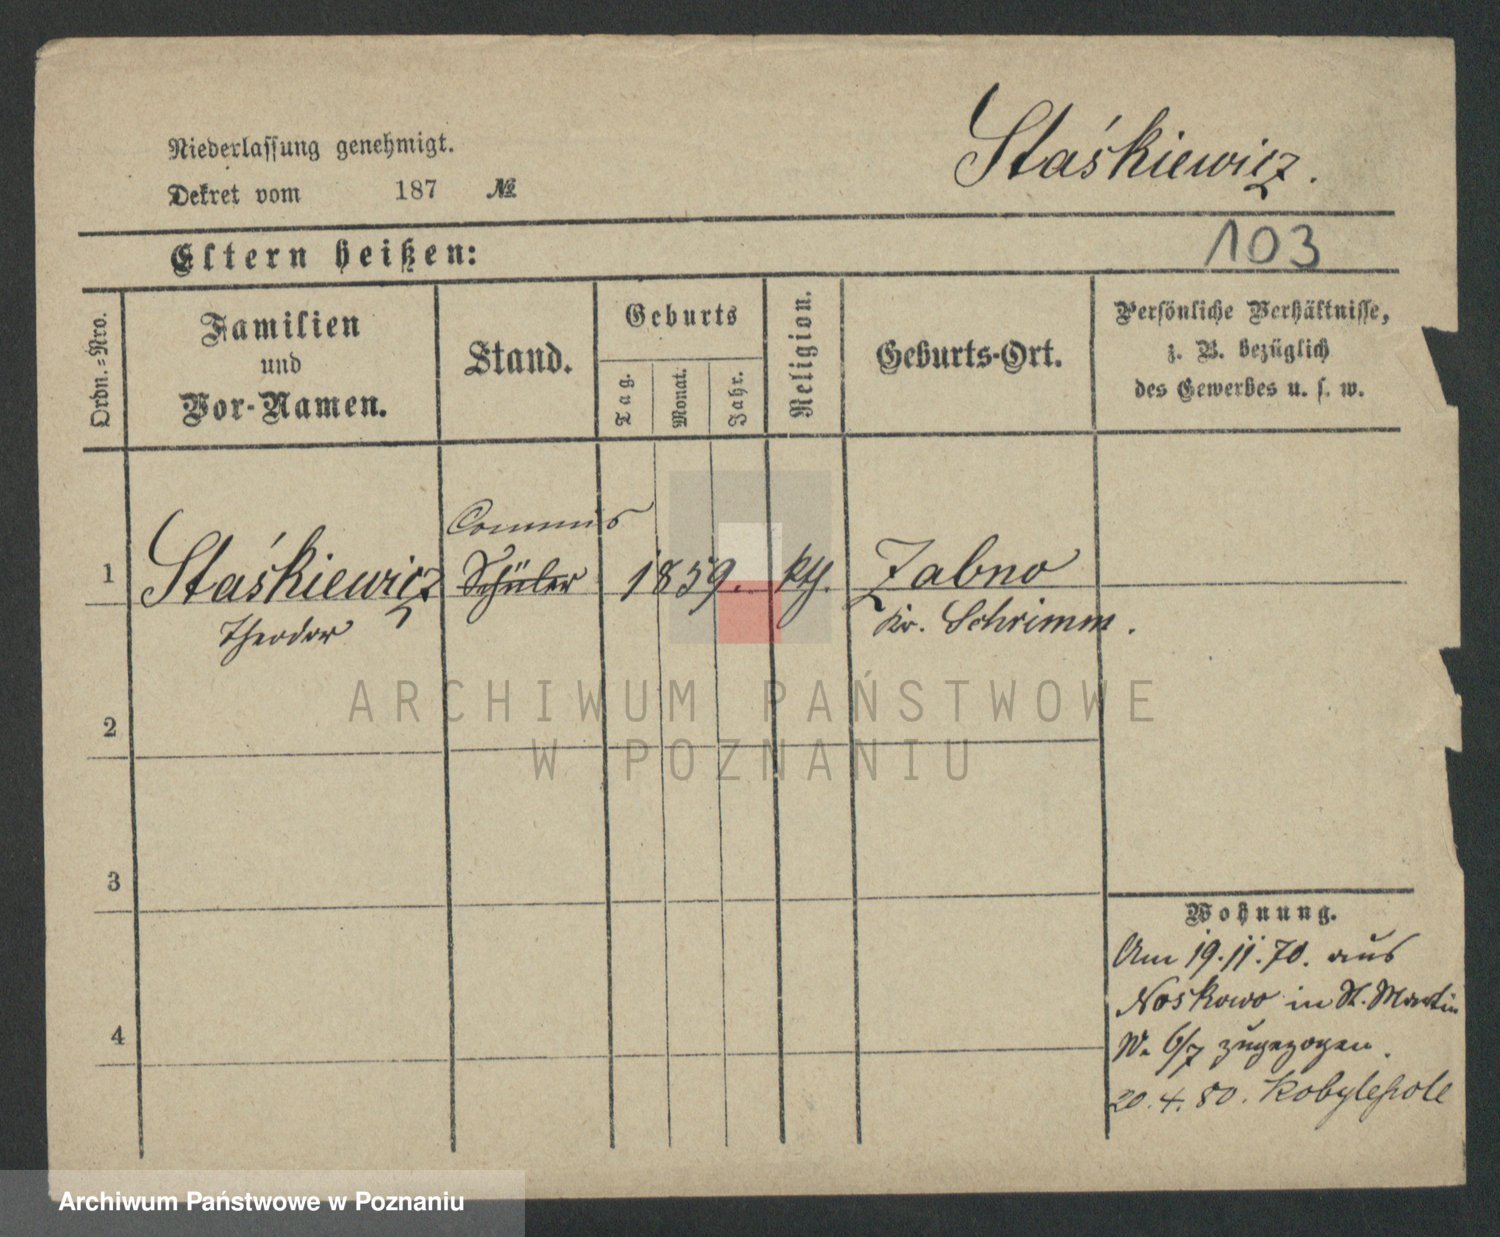 Staśkiewicz.
Niederlassung genehmigt.
Dekret vom 187 №
Eltern heißen:
103
Ordn.-Nro.
Familien
und
Vor-Namen.
Stand.
Geburts
Tag.
Monat.
Jahr.
Religion.
Geburts-Ort.
Persönliche Verhältnisse,
z. B. bezüglich
des Gewerbes u. s. w.
Commis
1 Staśkiewicz Schüler 1859. kth. Zabno
Theodor Kr. Schrimm.
2
3
4
Wohnung.
Am 19.11.70. aus
Noskowo in St. Martin
N. 6/7 zugezogen.
20.4.80. Kobylepole
ARCHIWUM PAŃSTWOWE
W POZNANIU
Archiwum Państwowe w Poznaniu